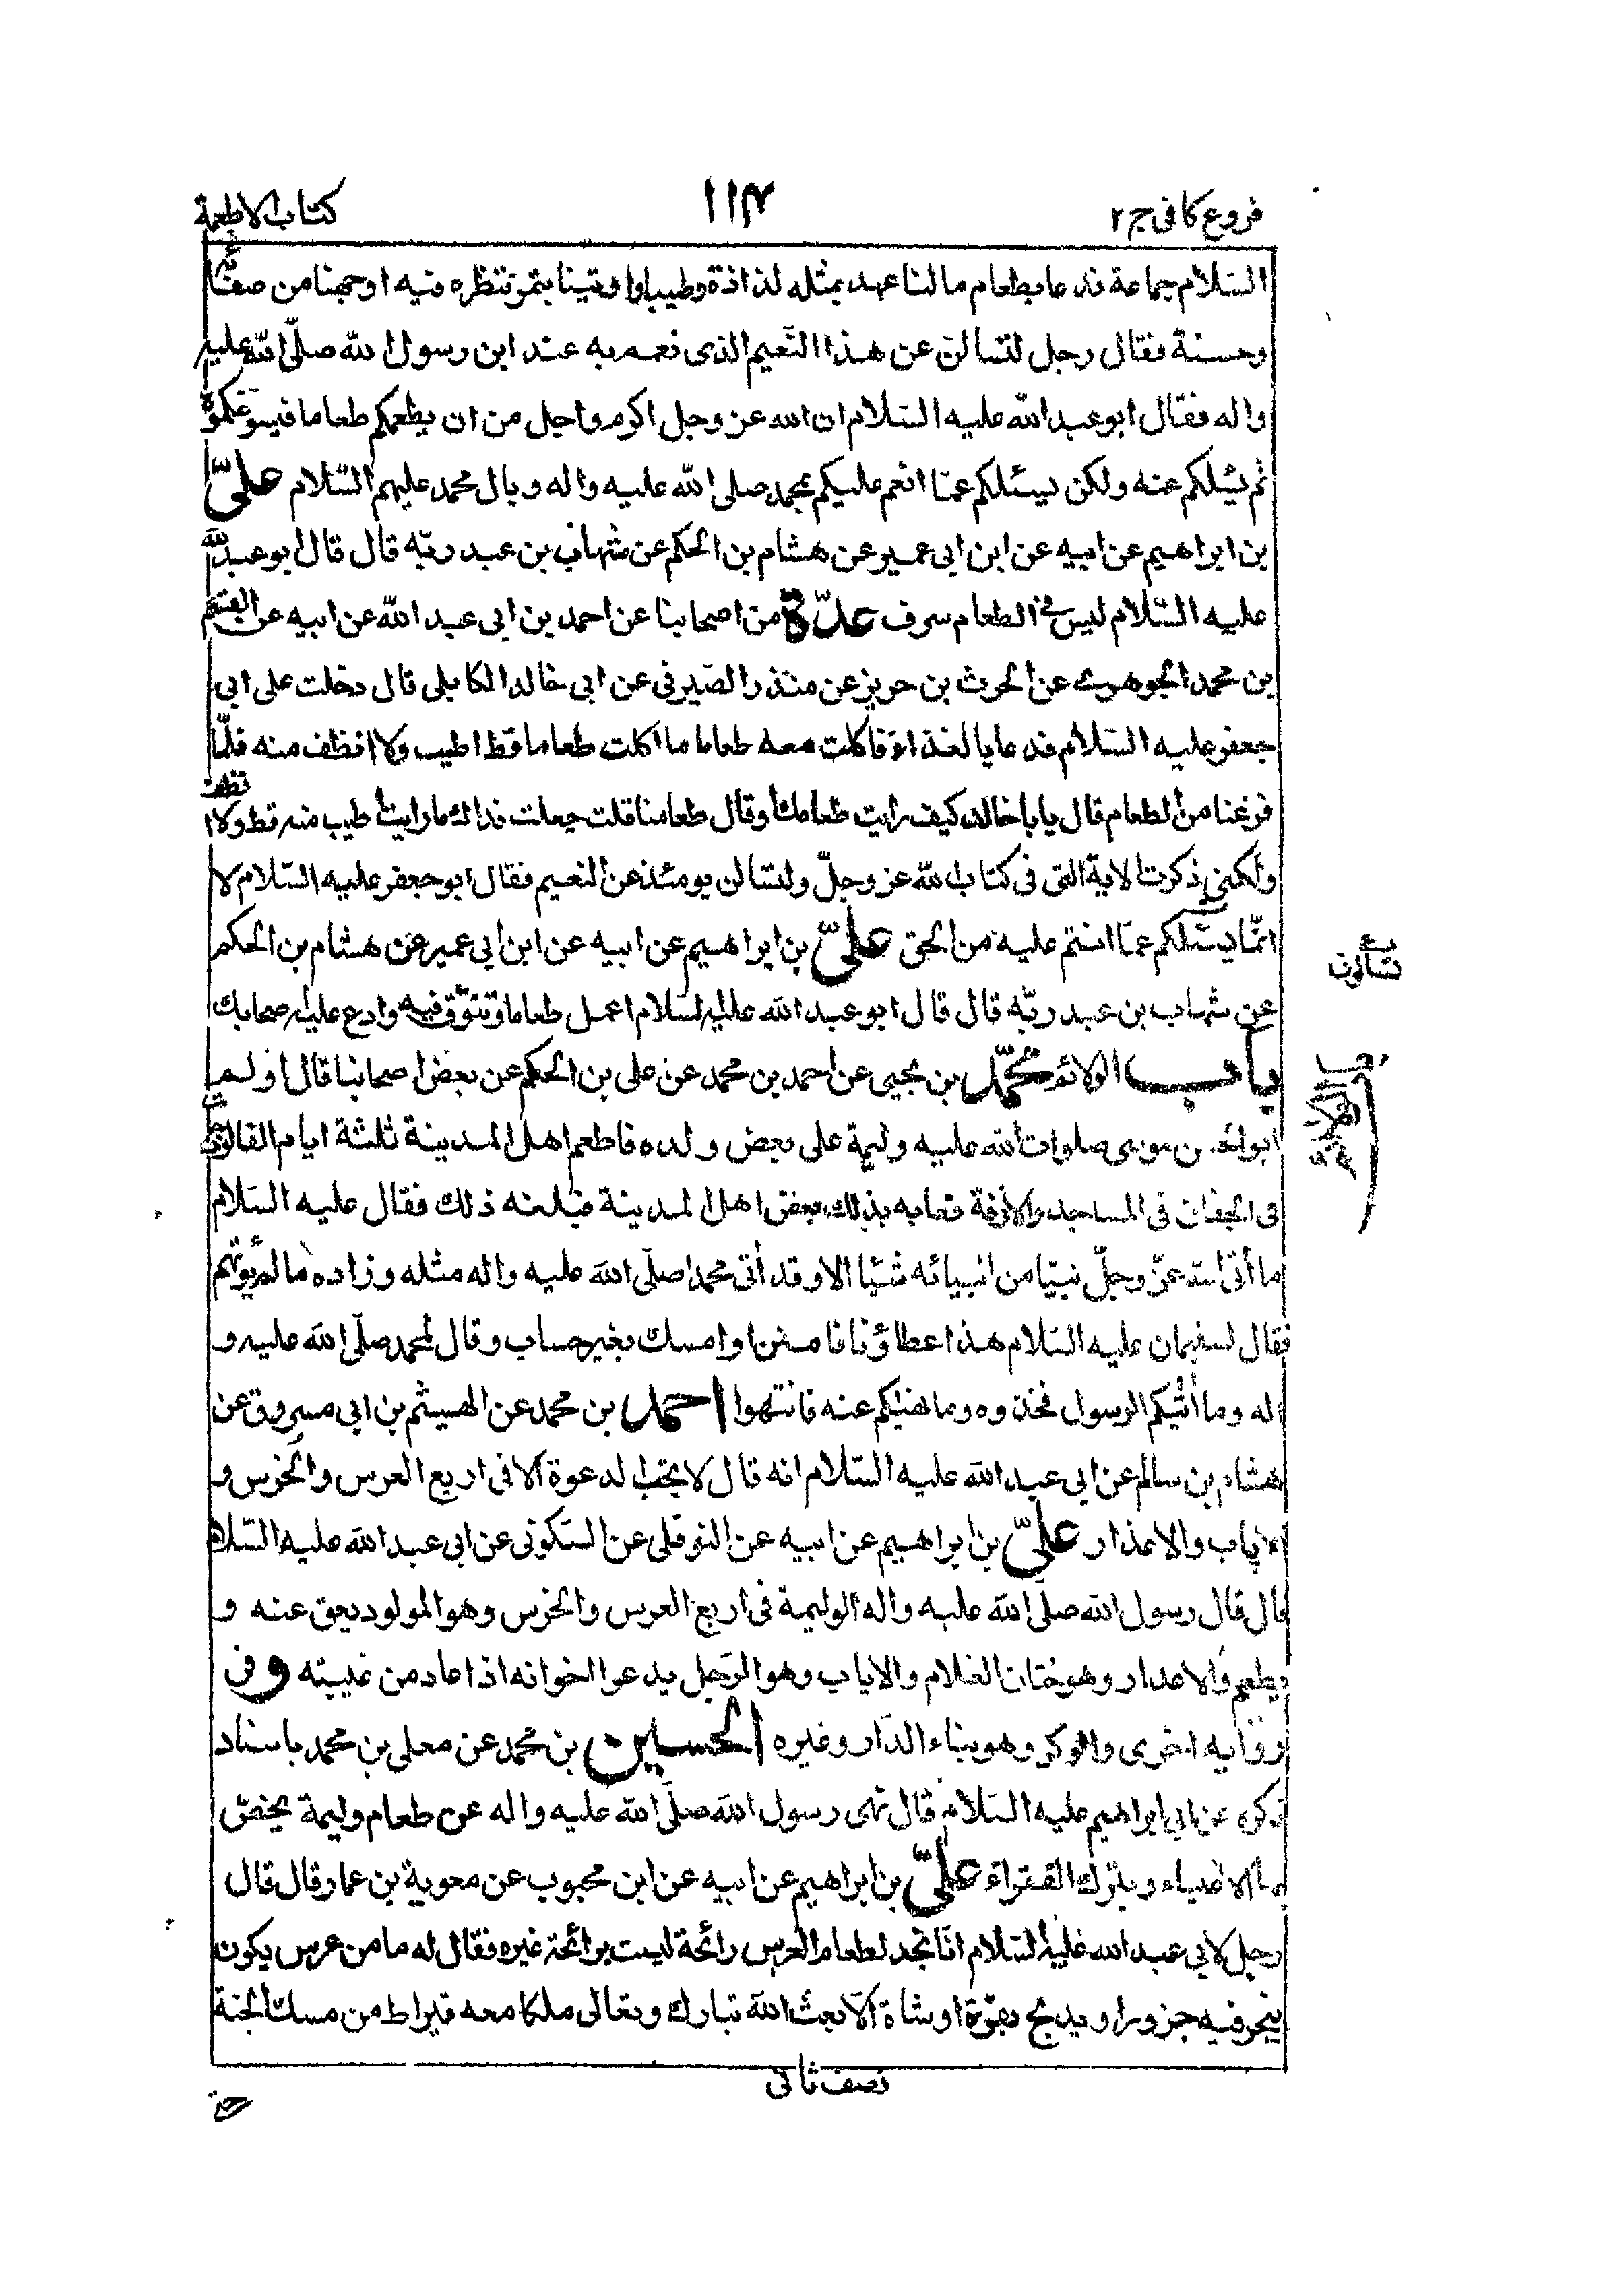 فروع كافى ج ٢
١١٣
كتاب الاطعمة
السّلام جماعة فدعا بطعام ما لنا عهد بمثله لذاذة وطيبا واوتينا بتمر تنظره فيه اوجهنا من صفائه
وحسنة فقال رجل لتسألنّ عن هذا النّعيم الذى نعم به عند ابن رسول الله صلّى الله عليه
واله فقال ابو عبد الله عليه السّلام ان الله عز وجل اكرم واجل من ان يطعمكم طعاما فيسوغكموه
ثم يسئلكم عنه ولكن يسئلكم عمّا انعم عليكم بمحمد صلى الله عليه واله وبال محمد عليهم السّلام علىّ
بن ابراهيم عن ابيه عن ابن ابى عمير عن هشام بن الحكم عن شهاب بن عبد ربّه قال قال ابو عبد الله
عليه السّلام ليس في الطعام سرف عدّة من اصحابنا عن احمد بن ابى عبد الله عن ابيه عن القسم
بن محمد الجوهرے عن الحرث بن حريز عن منذر الصّيرفى عن ابى خالد الكابلى قال دخلت على ابى
جعفر عليه السّلام فدعا بالغذاء فاكلت معه طعاما ما اكلت طعاما قط اطيب ولا انظف منه فلمّا
فرغنا من الطعام قال يابا خالد كيف رايت طعامك وقال طعامنا قلت جعلت فداك ما رايت اطيب منه قط ولا انظف
ولكنى ذكرت الاية التى فى كتاب الله عز وجلّ ولتسالن يومئذ عن النعيم فقال ابو جعفر عليه السّلام لا
انمّا يسئلكم عمّا انتم عليه من الحق علىّ بن ابراهيم عن ابيه عن ابن ابى عمير عن هشام بن الحكم
تسألون
عن شهاب بن عبد ربّه قال قال ابو عبد الله عليه السّلام اعمل طعاما وتنوّق فيه وادع عليه اصحابك
باب الولائم محمّد بن يحيى عن احمد بن محمد عن على بن الحكم عن بعض اصحابنا قال اولم
ابو الحسن موسى صلوات الله عليه وليمة على بعض ولده فاطعم اهل المدينة ثلثة ايام الفالوذجات
فى الجفان فى المساجد والازقة فعابه بذلك بعض اهل المدينة فبلغه ذلك فقال عليه السّلام
ما أتى الله عزّ وجلّ نبيّا من انبيائه شيئا الا وقد أتى محمدا صلّى الله عليه واله مثله وزاده ما لم يؤتهم
فقال لسليمان عليه السّلام هذا عطاؤنا فامنن او امسك بغير حساب وقال لمحمد صلّى الله عليه و
اله وما أتيكم الرسول فخذوه وما نهيكم عنه فانتهوا احمد بن محمد عن الهيثم بن ابى مسروق عن
هشام بن سالم عن ابى عبد الله عليه السّلام انه قال لا يجب الدعوة الا فى اربع العرس والخرس و
الاياب والاعذار علىّ بن ابراهيم عن ابيه عن النوفلى عن السّكونى عن ابى عبد الله عليه السّلام
قال قال رسول الله صلّى الله عليه واله الوليمة فى اربع العرس والخرس وهو المولود يعق عنه و
ويطعم والاعذار وهو ختان الغلام والاياب وهو الرّجل يدعوا اخوانه اذا عاد من غيبته وفى
رواية اخرى والوكر وهو بناء الدّار وغيره الحسين بن محمد عن معلى بن محمد باسناد
ذكره عن ابى ابراهيم عليه السّلام قال نهى رسول الله صلّى الله عليه واله عن طعام وليمة يخصّ
بها الاغنياء ويترك الفقراء علىّ بن ابراهيم عن ابيه عن ابن محبوب عن معوية بن عمار قال قال
رجل لابى عبد الله عليه السّلام انّا نجد لطعام العرس رائحة ليست برائحة غيره فقال له ما من عرس يكون
ينحر فيه جزورا ويذبح بقرة او شاة الّا بعث الله تبارك وتعالى ملكا معه قيراط من مسك الجنة
نصف ثانى